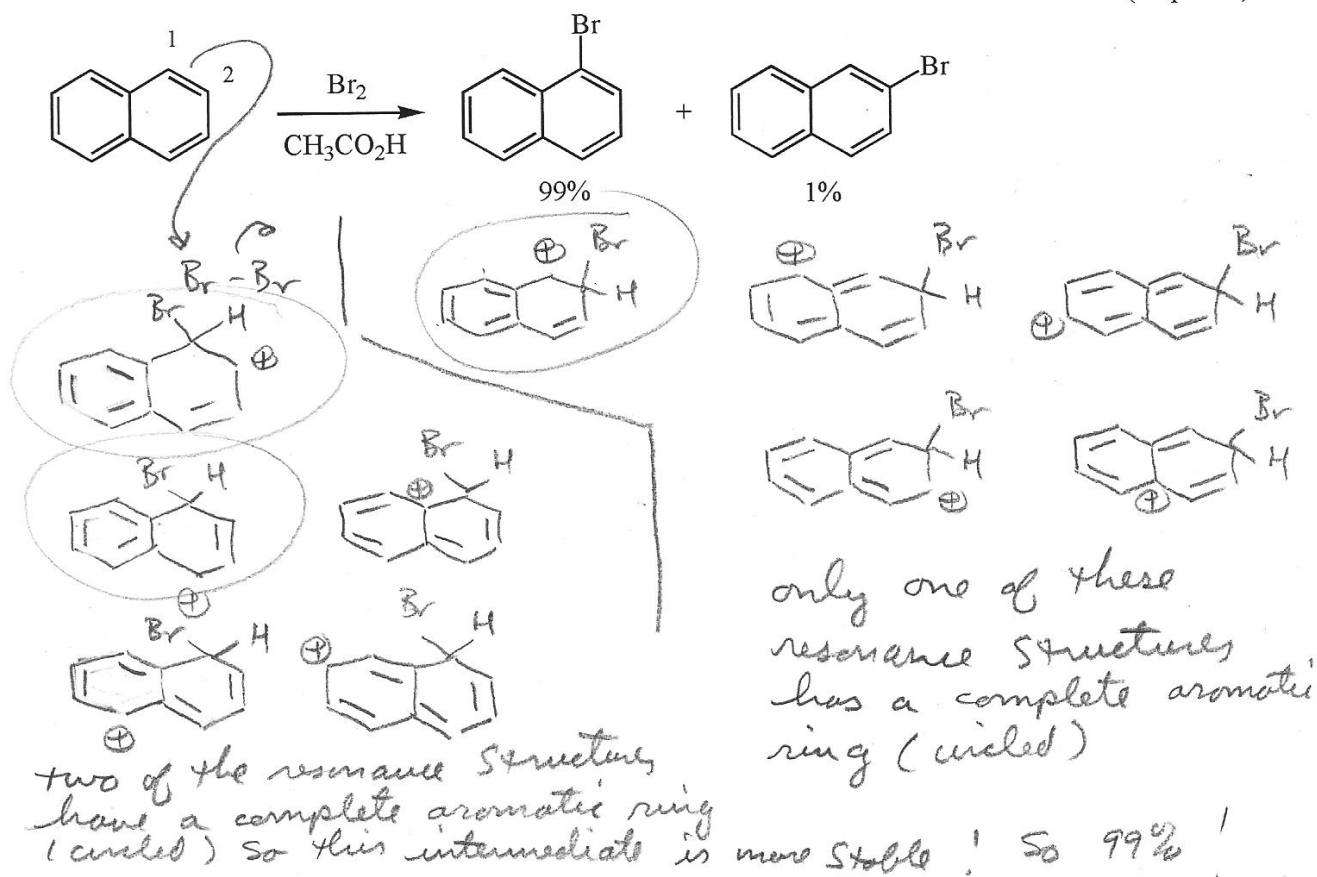 1
2
Br2
CH3CO2H
Br
+
Br
99%
1%
Br - Br
Br
H
⊕
⊕
Br
H
⊕
Br
H
Br
H
⊕
Br
H
⊕
Br
H
⊕
Br
H
⊕
Br
H
⊕
Br
H
⊕
Br
H
⊕
Br
H
⊕
only one of these
resonance structures
has a complete aromatic
ring (circled)
two of the resonance structures
have a complete aromatic ring
(circled) So this intermediate is more stable! So 99%!